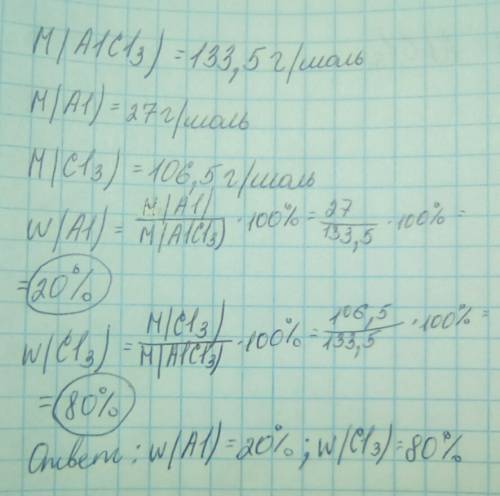 M(AlCl3) = 133,5 г/моль
M(Al) = 27 г/моль
M(Cl3) = 106,5 г/моль
W(Al) = M(Al)/M(AlCl3) · 100% = 27/133,5 · 100% =
= 20%
W(Cl3) = M(Cl3)/M(AlCl3) · 100% = 106,5/133,5 · 100% =
= 80%
Ответ: W(Al) = 20%; W(Cl3) = 80%